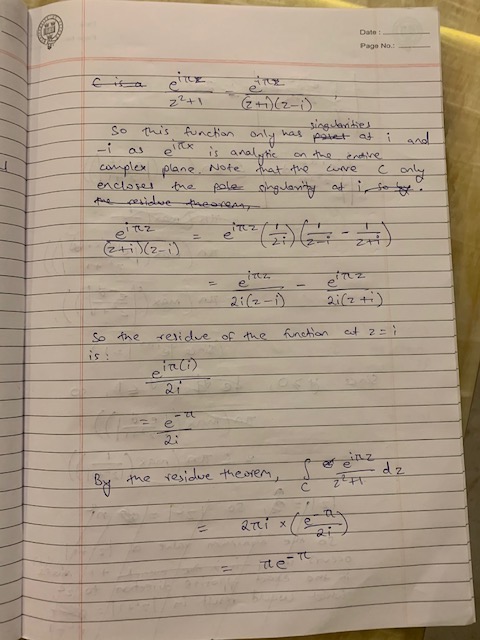 Date :
Page No.:
C is a e^{iπz}/(z²+1) = e^{iπz}/((z+i)(z-i))
singularities
So this function only has poles at i and
-i as e^{iπx} is analytic on the entire
complex plane. Note that the curve C only
encloses the pole singularity at i, so by.
the residue theorem,
e^{iπz}/((z+i)(z-i)) = e^{iπz} (1/2i) (1/(z-i) - 1/(z+i))
= e^{iπz}/(2i(z-i)) - e^{iπz}/(2i(z+i))
So the residue of the function at z=i
is :
e^{iπ(i)}/2i
= e^{-π}/2i
By the residue theorem, ∫_C e^{iπz}/(z²+1) dz
= 2πi × (e^{-π}/2i)
= πe^{-π}